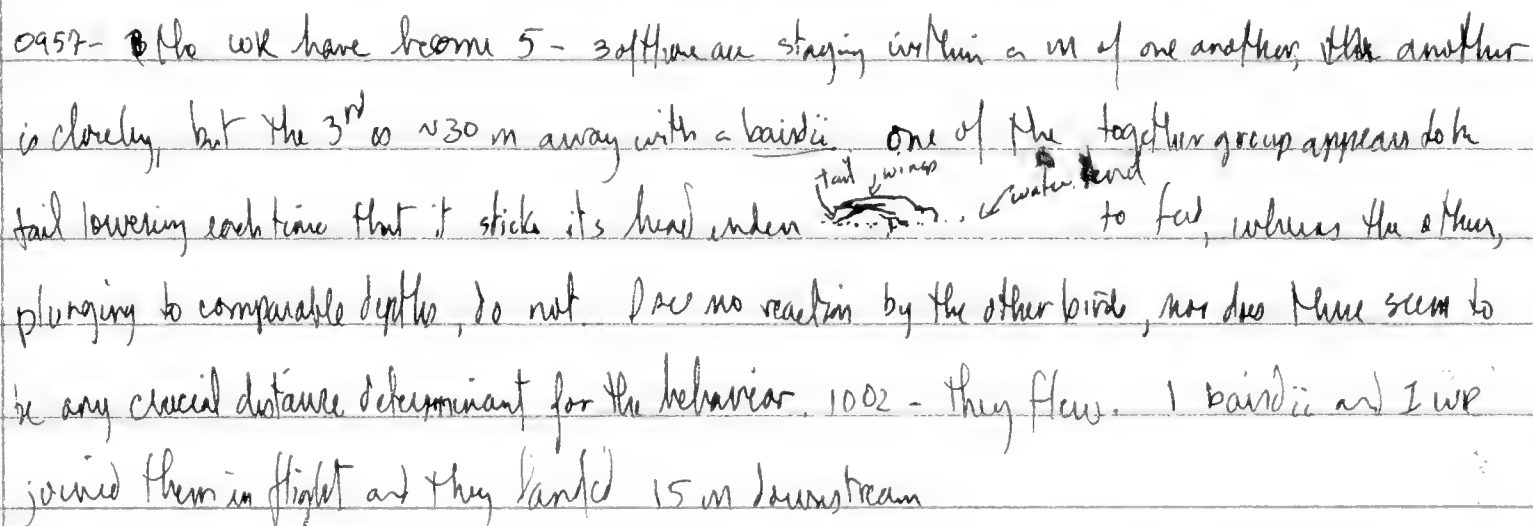 0957- the WR have become 5 - 3 of them are staying within a m of one another, another
is closeby, but the 3rd is ~30 m away with a bairdii. one of the together group appears to be
tail wings water
tail lowering each time that it sticks its head under to feed, whereas the others,
plunging to comparable depths, do not. I see no reaction by the other birds, nor does there seem to
be any crucial distance determinant for the behavior. 1002 - they flew. 1 bairdii and 1 WR
joined them in flight and they landed 15 m downstream